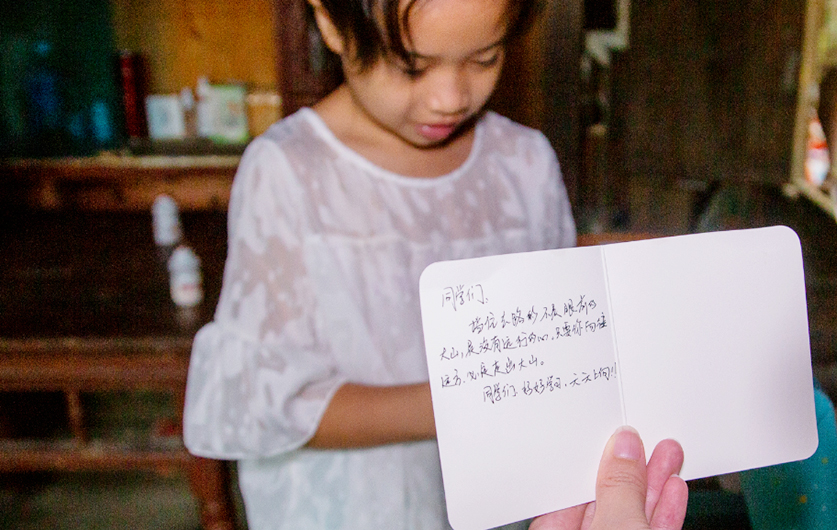 同学们:
挡住去路的不是眼前的
大山,是没有远行的心,只要你向往
远方,必是走出大山。
同学们,好好学习,天天上向!!